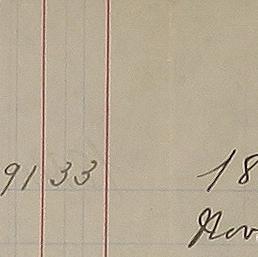 91 33 18
Nov